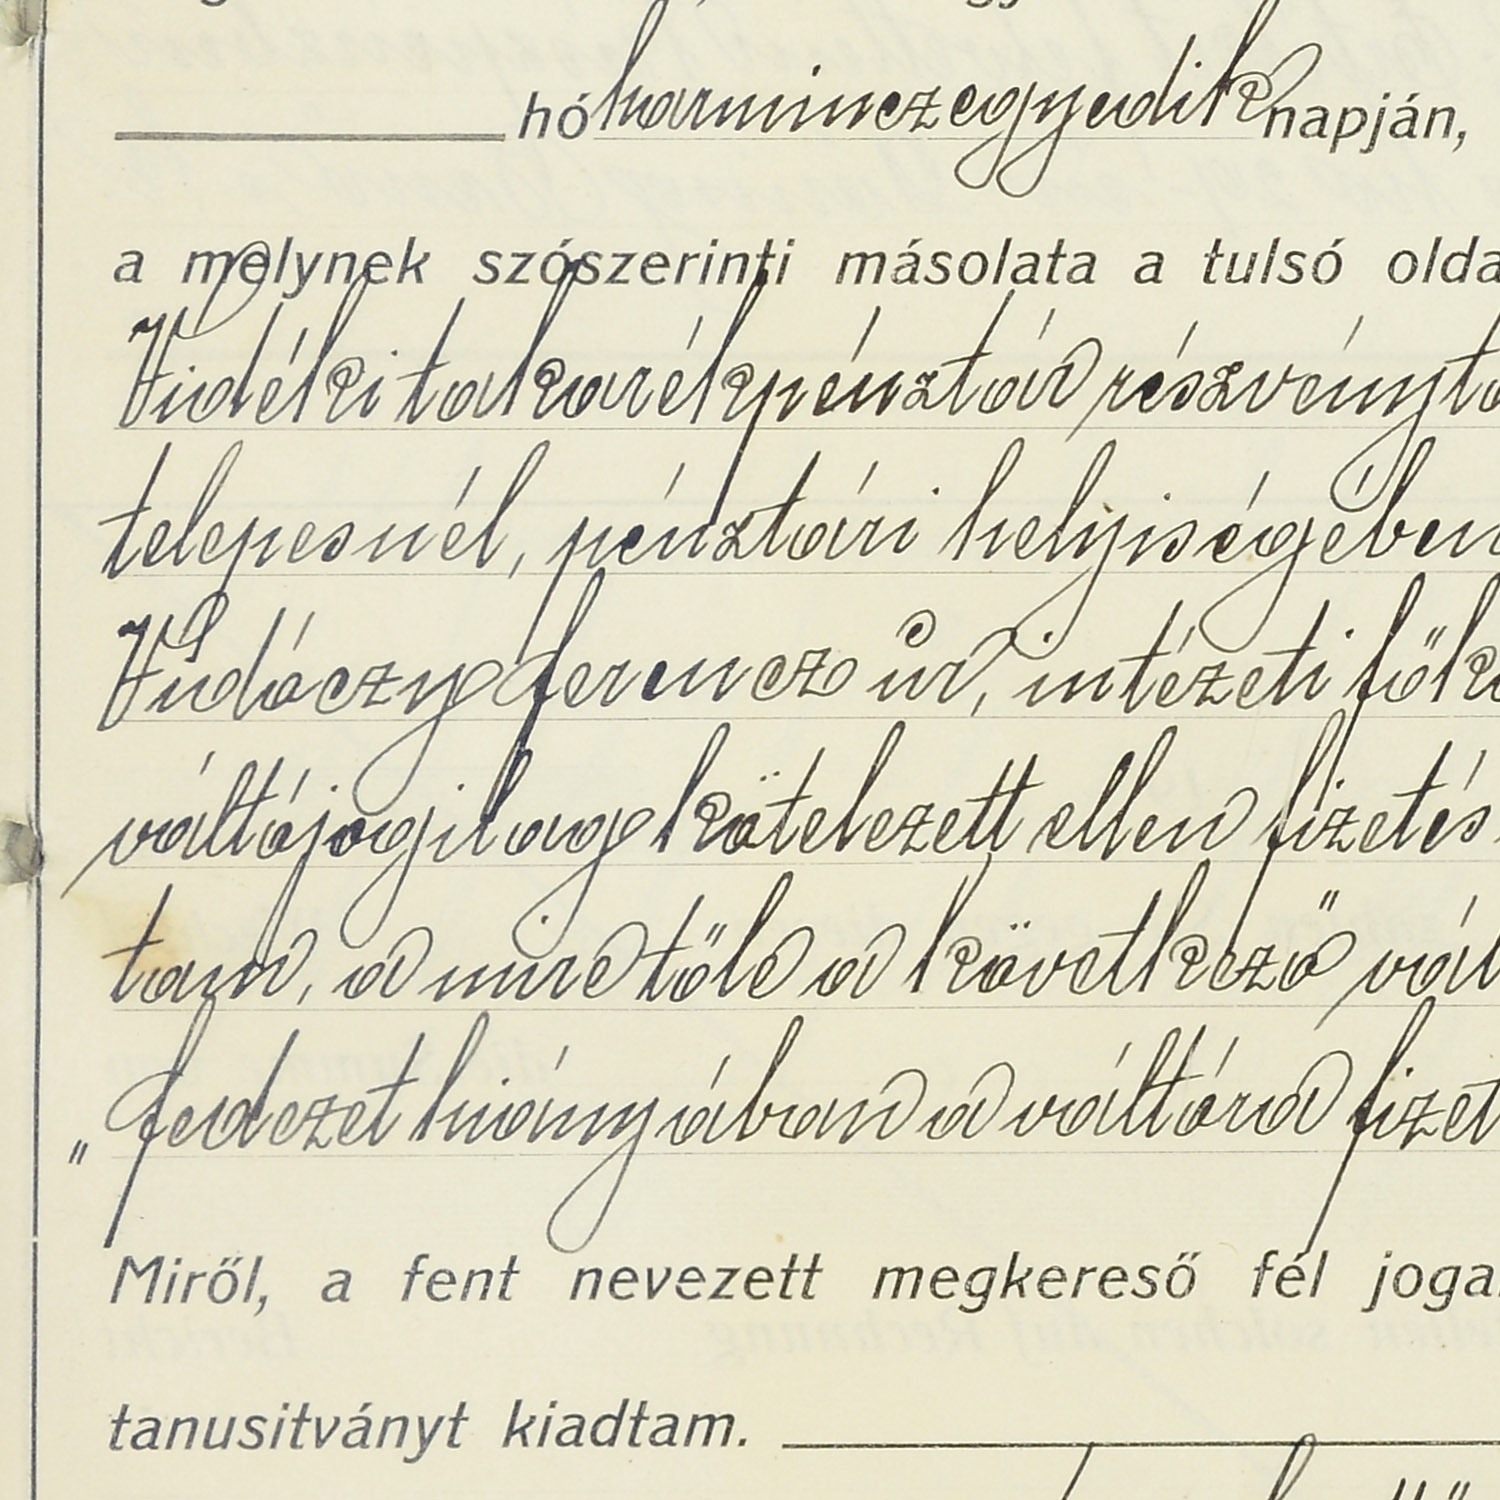 hó harminczegyedik napján,
a melynek szószerinti másolata a tulsó olda
Vidéki takarékpénztár részvényta
telepesnél, pénztári helyiségében
Vidóczy Ferencz úr, intézeti főkö
váltójogilag kötelezett ellen fizetés
tam, a mire tőle a következő vál
„fedezet hiányában a váltóra fizet
Miről, a fent nevezett megkereső fél joga
tanusitványt kiadtam.